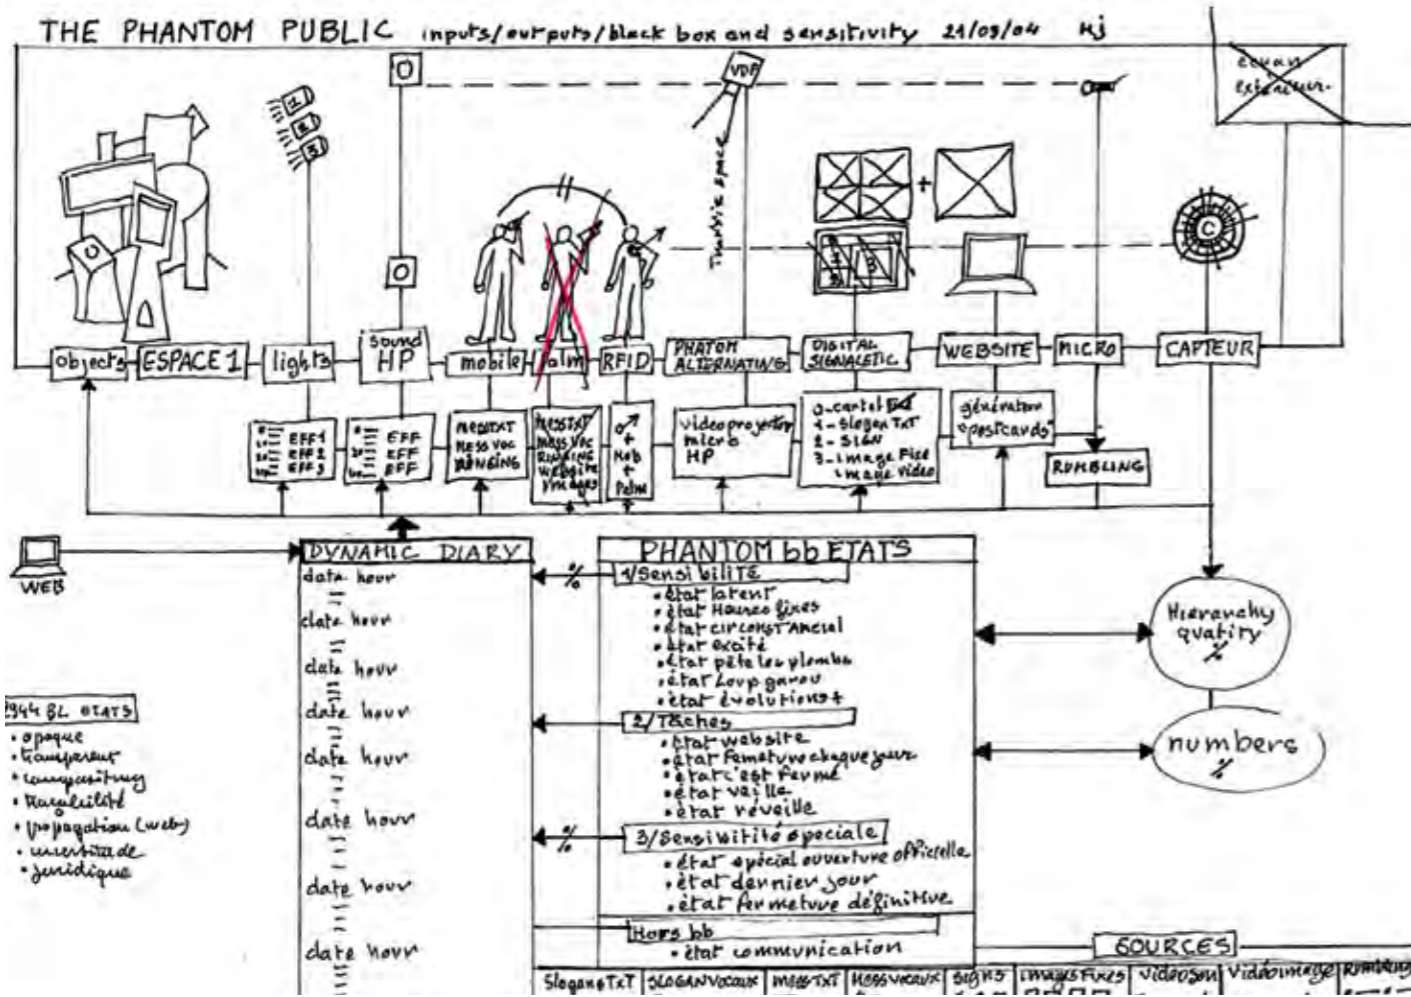 THE PHANTOM PUBLIC inputs/outputs/black box and sensitivity 21/09/04
écran
extérieur
VDP
1
2
3
Thomistic space
+
C
objects
ESPACE 1
lights
sound
HP
mobile
Palm
RFID
PHATOM
ALTERNATING
DIGITAL
SIGNALETIC
WEBSITE
MICRO
CAPTEUR
EFF1
EFF2
EFF3
EFF
EFF
EFF
MESSTXT
MESS VOC
RINGING
MESSTXT
MESS VOC
RINGING
website
images
+
Mob
+
Palm
videoprojector
micro
HP
0-cartel
1-Slogan TxT
2-SIGN
3-image Fixe
image video
génération
"postcards"
RUMBLING
WEB
DYNAMIC DIARY
date hour
date hour
date hour
date hour
date hour
date hour
date hour
date hour
%
%
PHANTOM bb ETATS
1/Sensibilité
• état latent
• état Heures fixes
• état circonstancial
• état excité
• état pète les plombs
• état Loup garou
• état évolutions +
2/Tâches
• état website
• état fermeture chaque jour
• état c'est fermé
• état veille
• état réveille
3/Sensiwitité spéciale
• état spécial ouverture officielle
• état dernier jour
• état fermeture définitive
Hors bb
• état communication
Hierarchy
quatity
%
numbers
%
BL ETATS
• opaque
• transparent
• compositing
• traçabilité
• propagation (web)
• incertitude
• juridique
SOURCES
Slogans TxT
SLOGAN Vocaux
Mess TxT
MESS Vocaux
Signs
images Fixes
video son
Video image
Rumbling